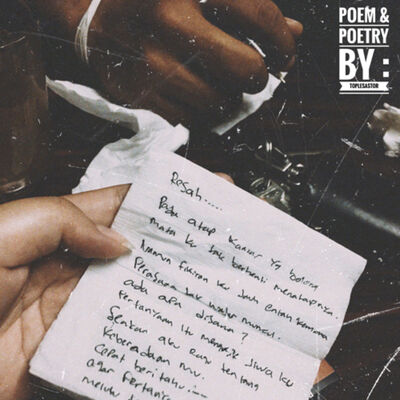 POEM &
POETRY
BY :
TOPLESASTOR
Resah.....
Pada atap kamar yg bolong
mata ku tak berhenti menatapnya.
Namun fikiran ku jauh entah kemana
Perasaan tak luntur muncul.
ada apa disana?
Pertanyaan itu mengusik jiwa ku
Seakan aku ragu tentang
keberadaan mu.
Cepat beritahu...
agar
melulu